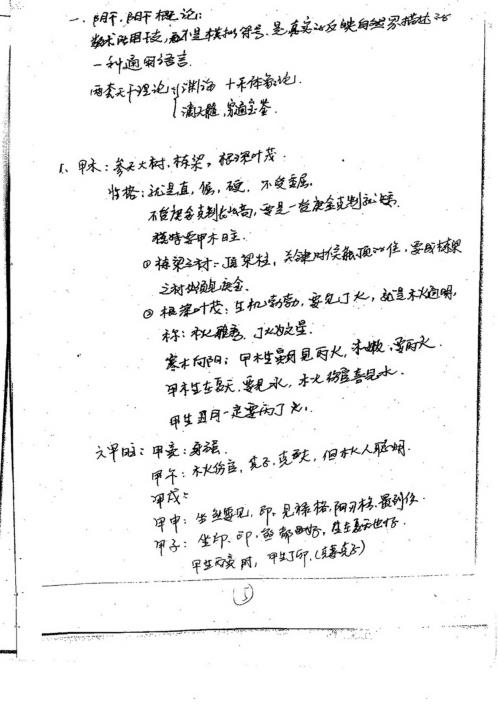 一、阳干、阴干概论:
数术所用干支,而不是模拟符号,是真实的反映自然界描述的
一种通用语言.
两套天干理论: 渊海 十天体象论.
滴天髓,穷通宝鉴.
1、甲木: 参天大树,栋梁,根深叶茂.
性格: 就是直,倔,硬,不受委屈.
不管庚金克制
要甲木日主.
① 栋梁之材: 顶架柱,关键时候能顶的住,要成栋梁
之材必须见庚金.
② 根深叶茂: 生机勃勃,要见丁火,就是木火通明,
称: 木火 丁火 之星.
寒木向阳: 甲木生寅月见丙火,木嫩,要丙火.
甲木生在夏天,要见水,木火伤官喜见水.
甲生丑月一定要丙丁火.
六甲日主: 甲寅: 身强.
甲午: 木火伤官,克子,克丈夫,但木火人聪明.
甲戌:
甲申: 坐煞要见印,见禄格,阳刃格,最到位.
甲子: 坐印,印,煞都 好,生在夏天也好.
甲生丙寅时,甲生丁卯.
5